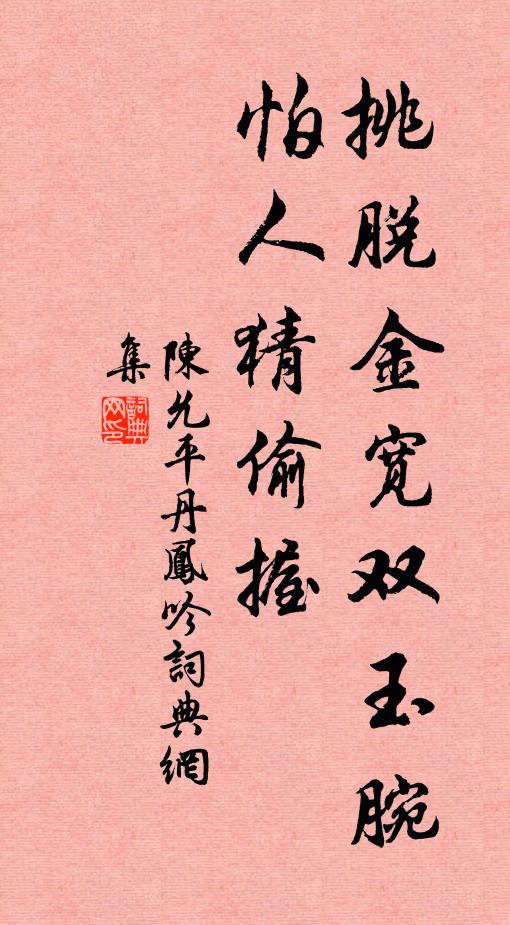 挑脱金宽双玉腕
怕人猜偷握
陳允平丹鳳吟詞典網
集
詞典網印